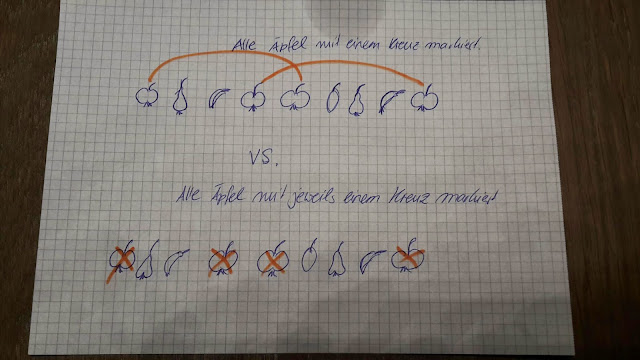 Alle Äpfel mit einem Kreuz markiert.
VS.
Alle Äpfel mit jeweils einem Kreuz markiert